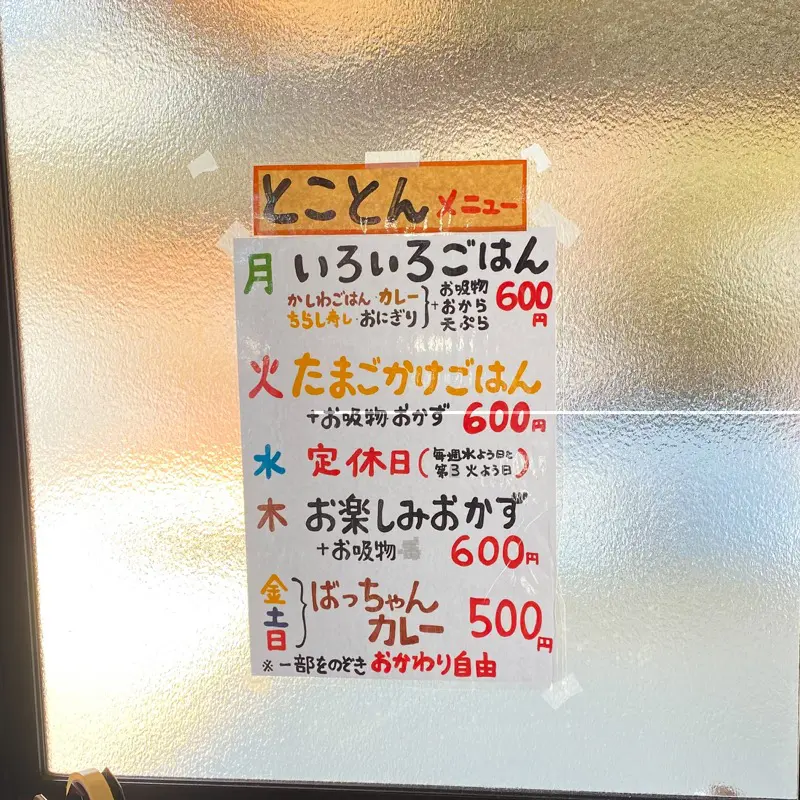 とことんメニュー
月 いろいろごはん
かしわごはん・カレー
ちらし寿し・おにぎり
+
お吸物
おから
天ぷら
600円
火 たまごかけごはん
+お吸物 おかず 600円
水 定休日(毎週水よう日と
第3火よう日)
木 お楽しみおかず
+お吸物 600円
金
土
日
ばっちゃん
カレー
500円
※一部をのぞきおかわり自由